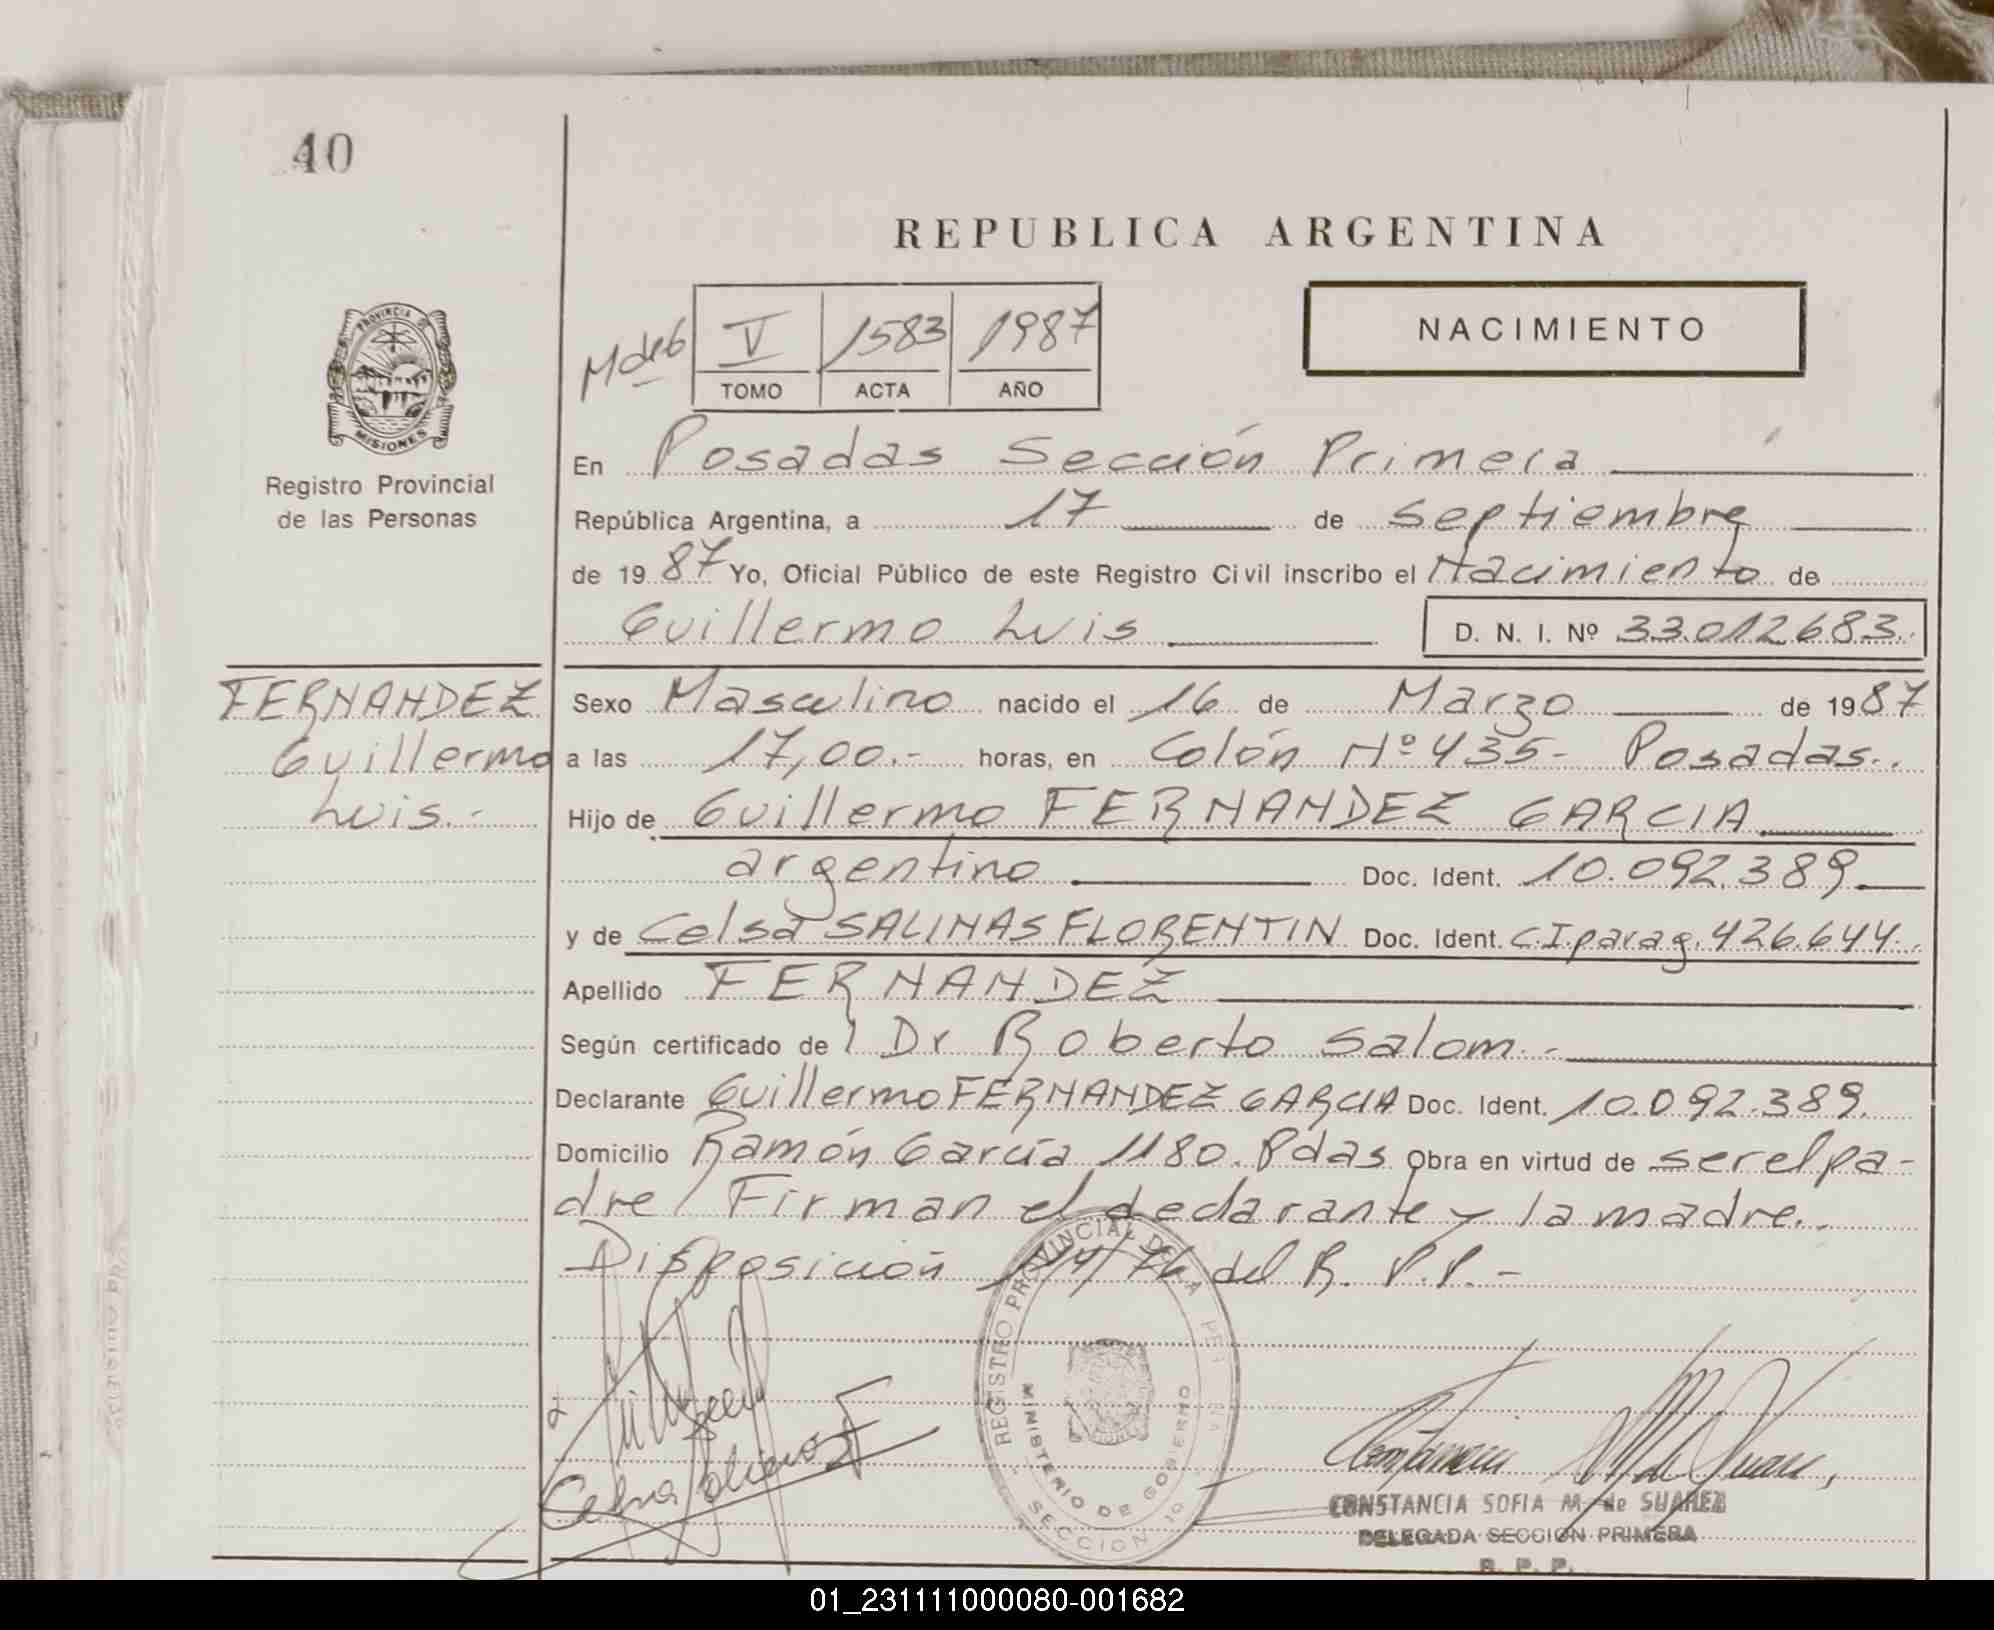 40
REPUBLICA ARGENTINA
NACIMIENTO
M de 6
V 1583 1987
TOMO ACTA AÑO
PROVINCIA DE
MISIONES
Registro Provincial
de las Personas
En Posadas Sección Primera
República Argentina, a 17 de septiembre
de 1987 Yo, Oficial Público de este Registro Civil inscribo el Nacimiento de
Guillermo Luis
D. N. I. Nº 33.012683.
FERNANDEZ
Guillermo
Luis.-
Sexo Masculino nacido el 16 de Marzo de 1987
a las 17,00.- horas, en Colón Nº 435- Posadas..
Hijo de Guillermo FERNANDEZ GARCIA
argentino Doc. Ident. 10.092.389
y de Celsa SALINAS FLORENTIN Doc. Ident. C.I.parag. 426.644.
Apellido FERNANDEZ
Según certificado de l Dr Roberto Salom.-
Declarante Guillermo FERNANDEZ GARCIA Doc. Ident. 10.092.389.
Domicilio Ramón García 1180. Pdas Obra en virtud de ser el pa-
dre/ Firman el declarante y la madre..
Disposición 114/76 del R. P.P.-
REGISTRO PROVINCIAL DE LA
MINISTERIO DE GOBIERNO
SECCION 1º
CONSTANCIA SOFIA M. de SUAREZ
DELEGADA SECCION PRIMERA
R. P. P.
01_231111000080-001682